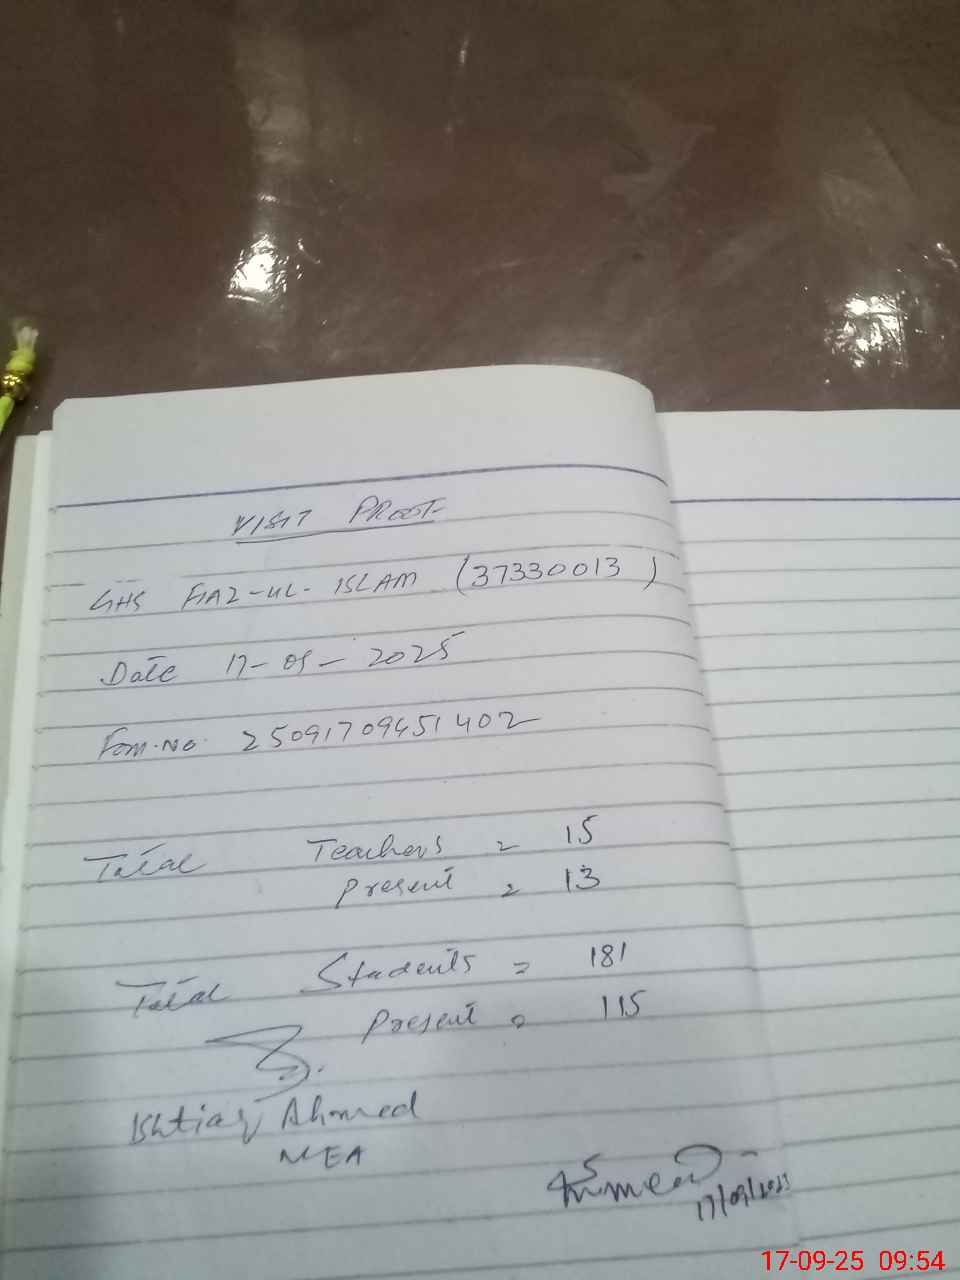 VISIT PROOF
GHS FIAZ-UL-ISLAM (37330013)
Date 17-09-2025
Form.No. 25091709451402
Total Teachers = 15
Present = 13
Total Students = 181
Present = 115
Ishtiaq Ahmed
MEA
17/09/2025
17-09-25 09:54